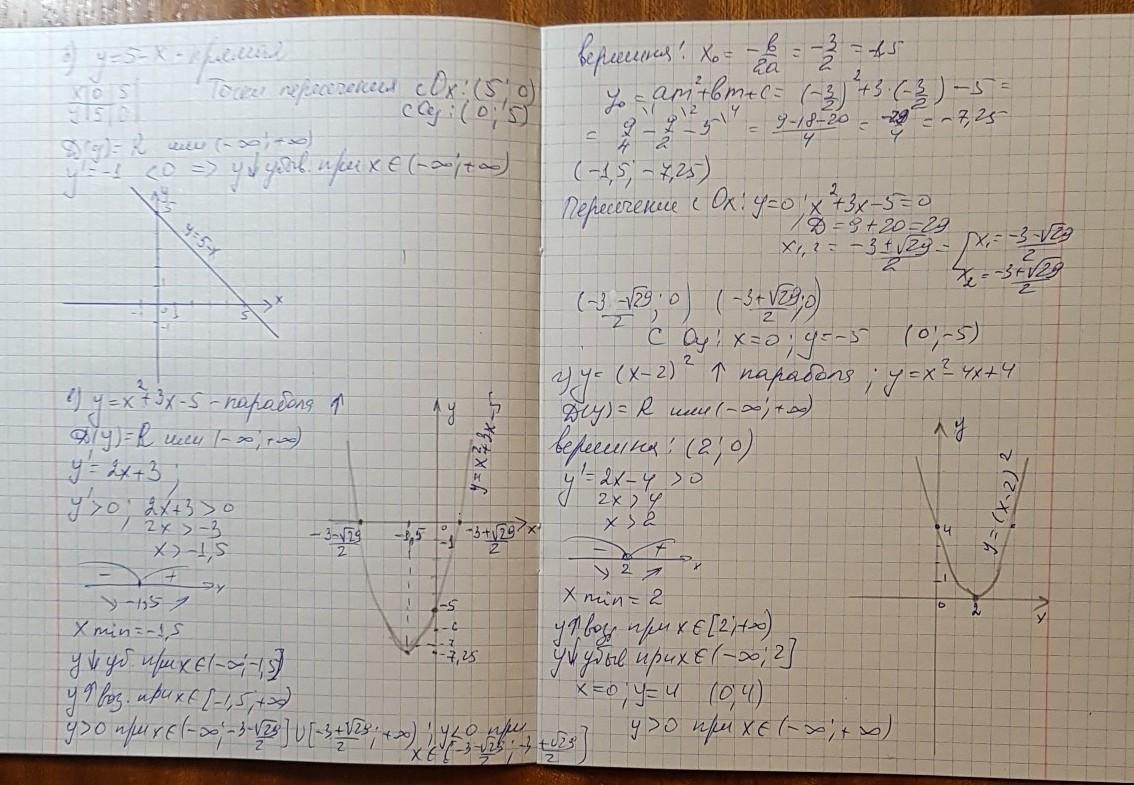 б) y=5-x - прямая
x|0|5|
y|5|0|
Точки пересечения с Ox: (5; 0)
с Oy: (0; 5)
D(y)=R или (-∞;+∞)
y'=-1 <0 => y↓ убыв. при x∈(-∞;+∞)
y
5
y=5-x
x
-1 0 1 5
-1
в) y=x²+3x-5 - парабола ↑
D(y)=R или (-∞;+∞)
y'=2x+3;
y'>0; 2x+3>0
2x>-3
x>-1,5
- + x
↘ -1,5 ↗
x min=-1,5
y↓ уб. при x∈(-∞;-1,5]
y↑ воз. при x∈[-1,5;+∞)
y>0 при x∈(-∞; (-3-√29)/2]∪[(-3+√29)/2; +∞); y<0 при
x∈[(-3-√29)/2; (-3+√29)/2]
y
y=x²+3x-5
(-3-√29)/2 -1,5 0 (-3+√29)/2 x
-1
-5
-6
-7
-7,25
вершина: x₀ = -b/2a = -3/2 = -1,5
y₀ = am²+bm+c = (-3/2)²+3·(-3/2)-5 =
= 9/4 - 9/2 - 5 = (9-18-20)/4 = -29/4 = -7,25
(-1,5; -7,25)
Пересечение с Ox: y=0; x²+3x-5=0
D=9+20=29
x₁,₂ = (-3±√29)/2 = [x₁=(-3-√29)/2
x₂=(-3+√29)/2
((-3-√29)/2; 0) ((-3+√29)/2; 0)
С Oy: x=0; y=-5 (0;-5)
г) y=(x-2)² ↑ парабола; y=x²-4x+4
D(y)=R или (-∞;+∞)
вершина: (2;0)
y'=2x-4>0
2x>4
x>2
- + x
↘ 2 ↗
x min=2
y↑ воз. при x∈[2;+∞)
y↓ убыв при x∈(-∞;2]
x=0; y=4 (0;4)
y>0 при x∈(-∞;+∞)
y
y=(x-2)²
4
1
0 2 x